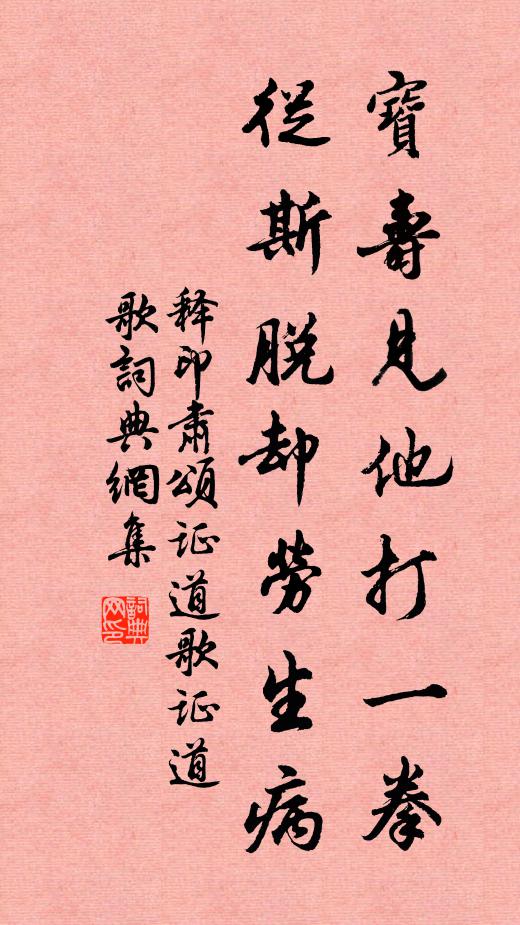 寶壽見他打一拳
從斯脫却勞生病
释印肃頌证道歌证道
歌詞典網集
詞典網印